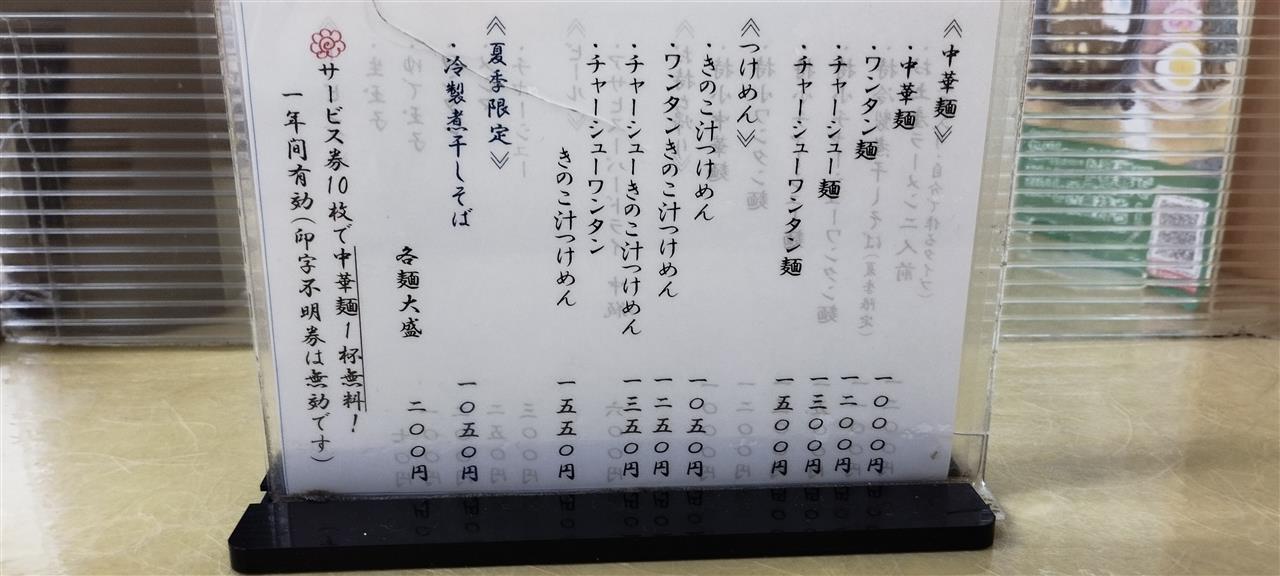 ≪中華麺≫
・中華麺 一〇〇〇円
・ワンタン麺 一二〇〇円
・チャーシュー麺 一三〇〇円
・チャーシューワンタン麺 一五〇〇円
≪つけめん≫
・きのこ汁つけめん 一〇五〇円
・ワンタンきのこ汁つけめん 一二五〇円
・チャーシューきのこ汁つけめん 一三五〇円
・チャーシューワンタン
きのこ汁つけめん 一五五〇円
≪夏季限定≫
・冷製煮干しそば 一〇五〇円
各麺大盛 二〇〇円
サービス券10枚で中華麺1杯無料!
一年間有効(印字不明券は無効です)